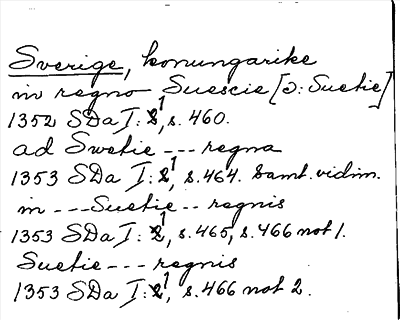 Sverige, konungarike
in regno Suescie [ɔ: Suetie]
1352 SDa I:1, s. 460.
ad Swetie --- regna
1353 SDa I:1, s. 464. Samt. vidim.
in --- Suetie -- regnis
1353 SDa I:1, s. 465, s. 466 not 1.
Suetie --- regnis
1353 SDa I:1, s. 466 not 2.